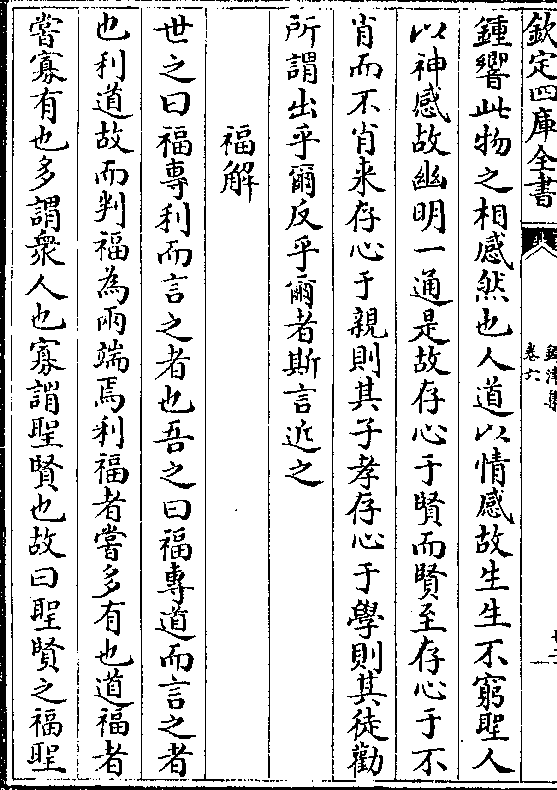 欽定四庫全書
鐔津集
卷六
廿二
鍾響此物之相感然也人道以情感故生生不窮聖人
以神感故幽明一通是故存心于賢而賢至存心于不
肖而不肖来存心于親則其子孝存心于學則其徒勸
所謂出乎爾反乎爾者斯言近之
福解
世之曰福專利而言之者也吾之曰福專道而言之者
也利道故而判福為兩端焉利福者嘗多有也道福者
嘗寡有也多謂衆人也寡謂聖賢也故曰聖賢之福聖